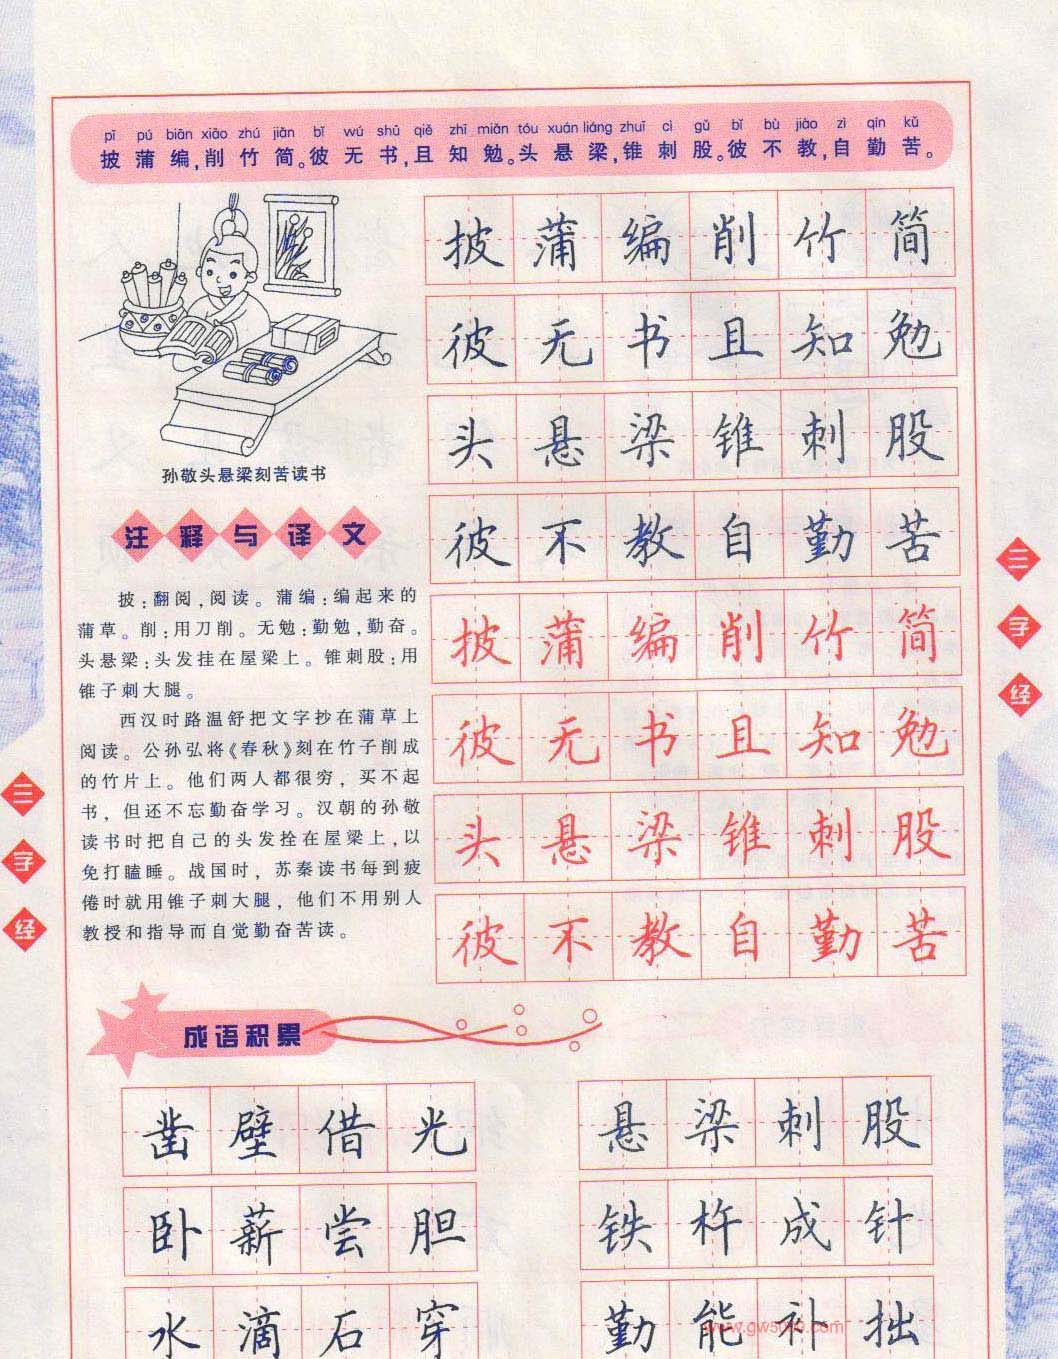 pī pú biān xiāo zhú jiǎn bǐ wú shū qiě zhī miǎn tóu xuán liáng zhuī cì gǔ bǐ bù jiào zì qín kǔ
披蒲编,削竹简。彼无书,且知勉。头悬梁,锥刺股。彼不教,自勤苦。
披蒲编削竹简
彼无书且知勉
头悬梁锥刺股
彼不教自勤苦
披蒲编削竹简
彼无书且知勉
头悬梁锥刺股
彼不教自勤苦
孙敬头悬梁刻苦读书
注释与译文
披:翻阅,阅读。蒲编:编起来的
蒲草。削:用刀削。无勉:勤勉,勤奋。
头悬梁:头发挂在屋梁上。锥刺股:用
锥子刺大腿。
西汉时路温舒把文字抄在蒲草上
阅读。公孙弘将《春秋》刻在竹子削成
的竹片上。他们两人都很穷，买不起
书，但还不忘勤奋学习。汉朝的孙敬
读书时把自己的头发拴在屋梁上,以
免打瞌睡。战国时，苏秦读书每到疲
倦时就用锥子刺大腿，他们不用别人
教授和指导而自觉勤奋苦读。
三字经
三字经
成语积累
凿壁借光
悬梁刺股
卧薪尝胆
铁杵成针
水滴石穿
勤能补拙